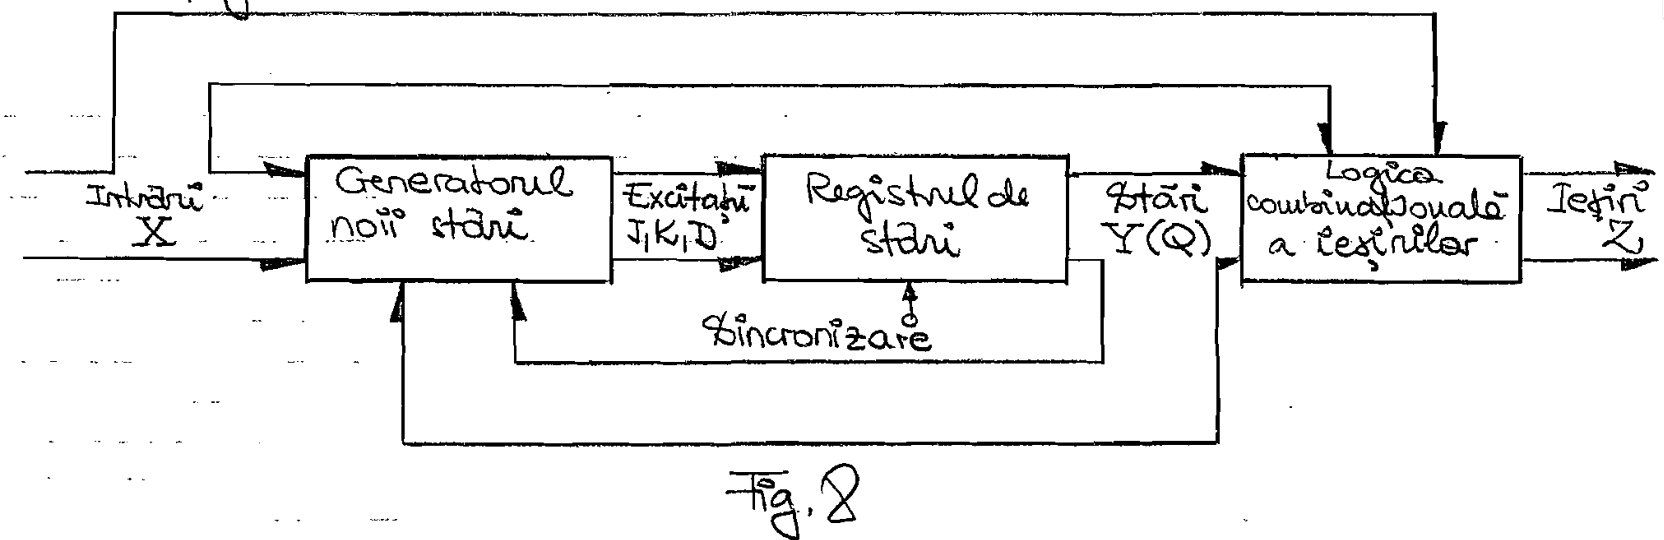 Intrări
X
Generatorul
noii stări
Excitații
J,K,D
Registrul de
stări
Sincronizare
Stări
Y(Q)
Logica
combinațională
a ieșirilor
Ieșiri
Z
Fig. 8